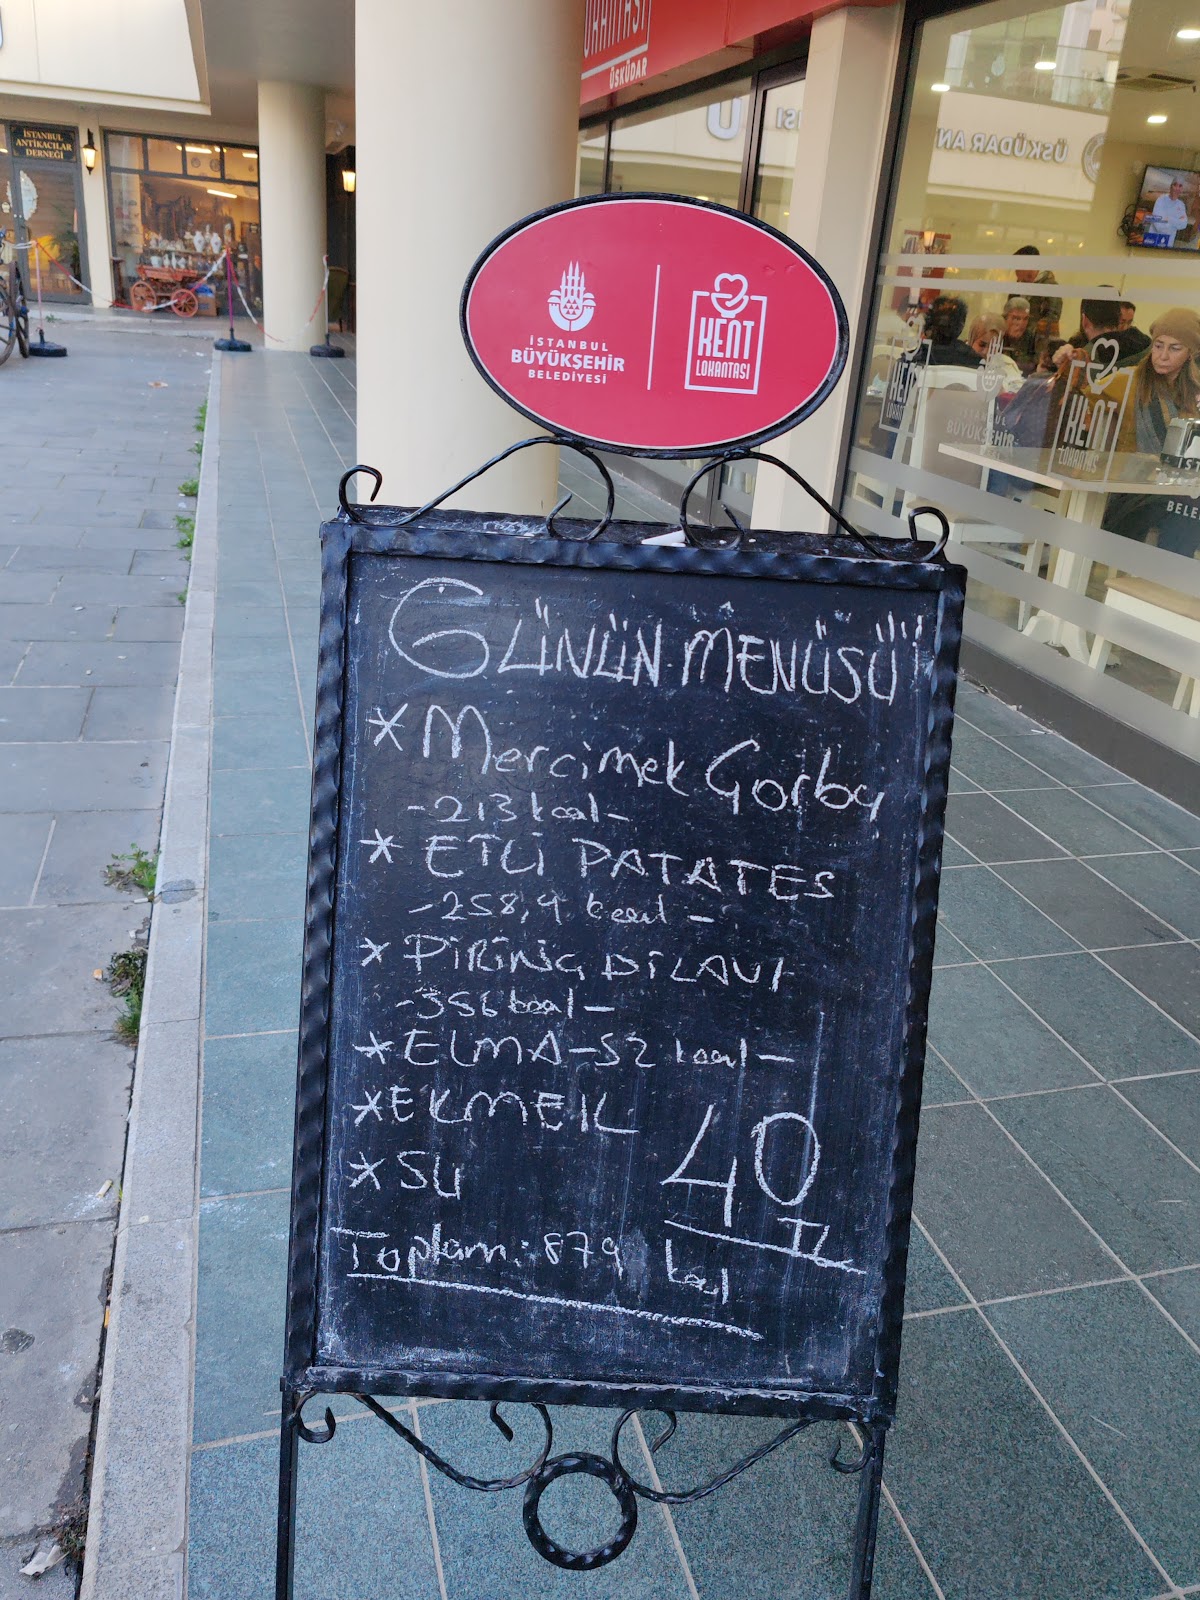 İSTANBUL
ANTİKACILAR
DERNEĞİ
ÜSKÜDAR
ÜSKÜDAR AN
İSTANBUL
BÜYÜKŞEHİR
BELEDİYESİ
KENT
LOKANTASI
KENT
LOKANTASI
KENT
LOKANTASI
GÜNÜN MENÜSÜ
* Mercimek Çorba
-213 kcal-
* ETLİ PATATES
-258,9 kcal-
* PİRİNÇ PİLAVI
-356 kcal-
* ELMA-52 kcal-
* EKMEK
* SU
40 TL
Toplam: 879 kcal